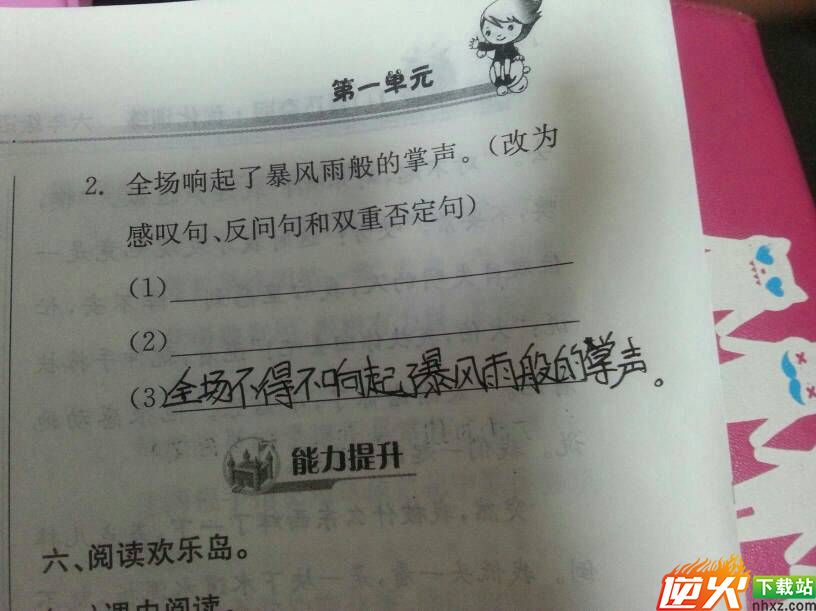 第一单元
2. 全场响起了暴风雨般的掌声。(改为
感叹句、反问句和双重否定句)
(1)
(2)
(3)全场不得不响起了暴风雨般的掌声。
能力提升
六、阅读欢乐岛。
课内阅读。
逆火下载站
nhxz.com